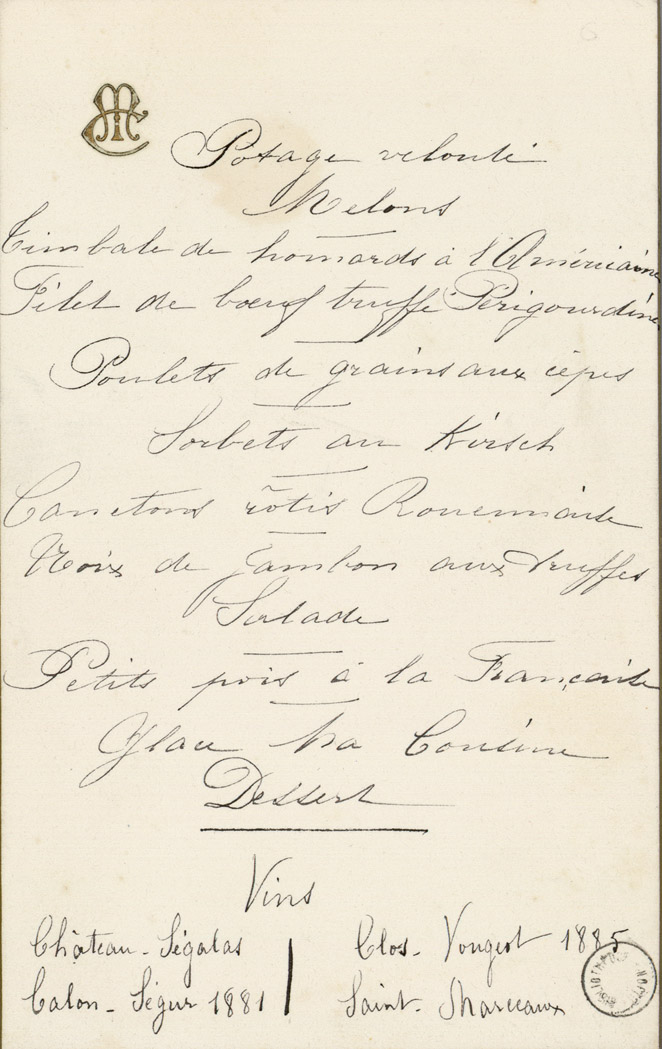 Potage velouté
Melons
Timbale de homards à l'Américaine
Filet de bœuf truffé Périgourdine
Poulets de grains aux cèpes
Sorbets au Kirsch
Canetons rôtis Rouennaise
Noix de Jambon aux truffes
Salade
Petits pois à la Française
Glace Ma Cousine
Dessert
Vins
Château-Ségalas
Calon-Ségur 1881
Clos-Vougeot 1885
Saint-Marceaux